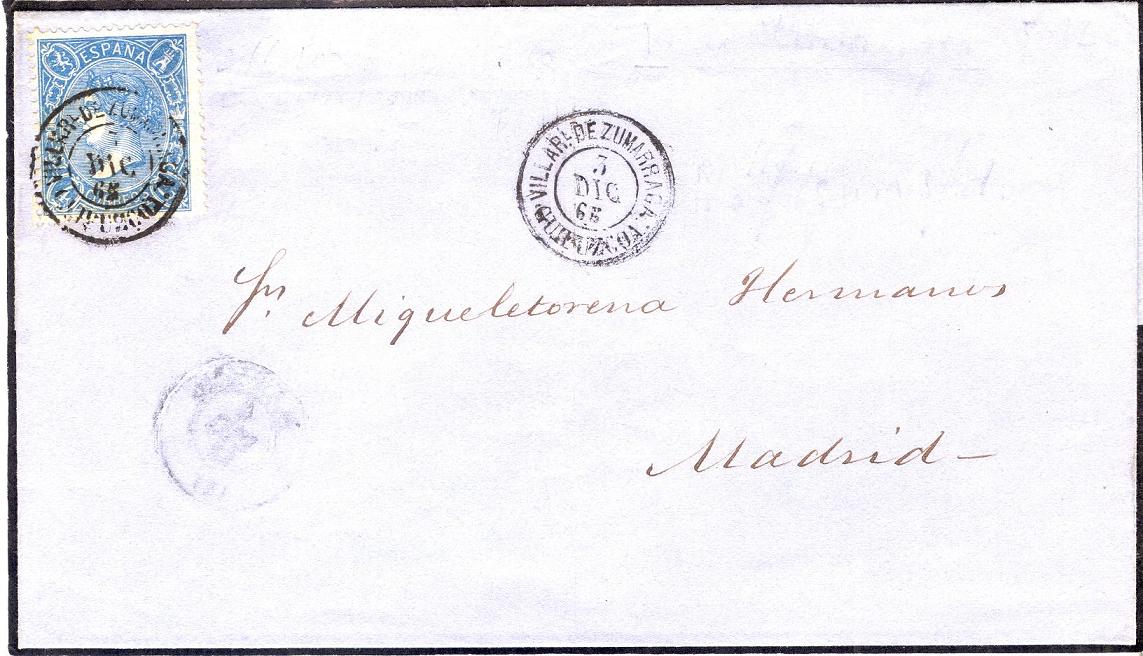 ESPAÑA
VILLARL DE ZUMARRAGA
DIC
65
VILLARL DE ZUMARRAGA
3
DIC
65
GUIPUZCOA
Sres Miqueletorena Hermanos
Madrid —